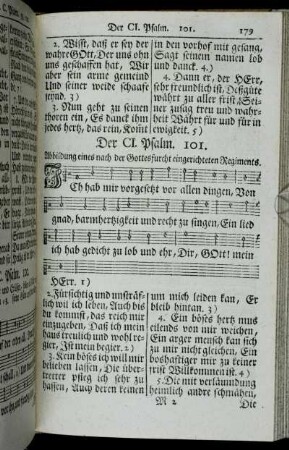 Der CI. Psalm. 101. 179
2. Wißt, daß er sey der
wahre GOtt, Der uns ohn
uns geschaffen hat, Wir
aber sein arme gemeind
Und seiner weide schaafe
seynd. 3)
3. Nun geht zu seinen
thoren ein, Es danck ihm
jedes hertz, das rein, Kommt
in den vorhof mit gesang,
Sagt seinem namen lob
und danck. 4.)
4. Dann er, der HErr,
sehr freundlich ist, Deß güte
währt zu aller frist, Sei-
ner zusag treu und wahr-
heit Währt für und für in
ewigkeit. 5)
Der CI. Psalm. 101.
Abbildung eines nach der Gottesfurcht eingerichteten Regiments.
Ich hab mir vorgesetzt vor allen dingen, Von
gnad, barmhertzigkeit und recht zu singen, Ein lied
ich hab gedicht zu lob und ehr, Dir, GOtt! mein
HErr. 1)
2. Fürsichtig und unsträf-
lich will ich leben, Auch bis
du kommst, das reich mir
einzugeben, Daß ich mein
haus treulich und wohl re-
gier, Ist mein begier. 2)
3. Kein böses ich will mir
belieben lassen, Die über-
tretter pfleg ich sehr zu
hassen, Auch deren keinen
um mich leiden kan, Er
bleib hintan. 3)
4. Ein böses hertz mus
eilends von mir weichen,
Ein arger mensch kan sich
zu mir nicht gleichen, Ein
boshaftiger mir zu keiner
frist Willkommen ist. 4)
5. Die mit verläumdung
heimlich andre schmähen,
M 2 Die